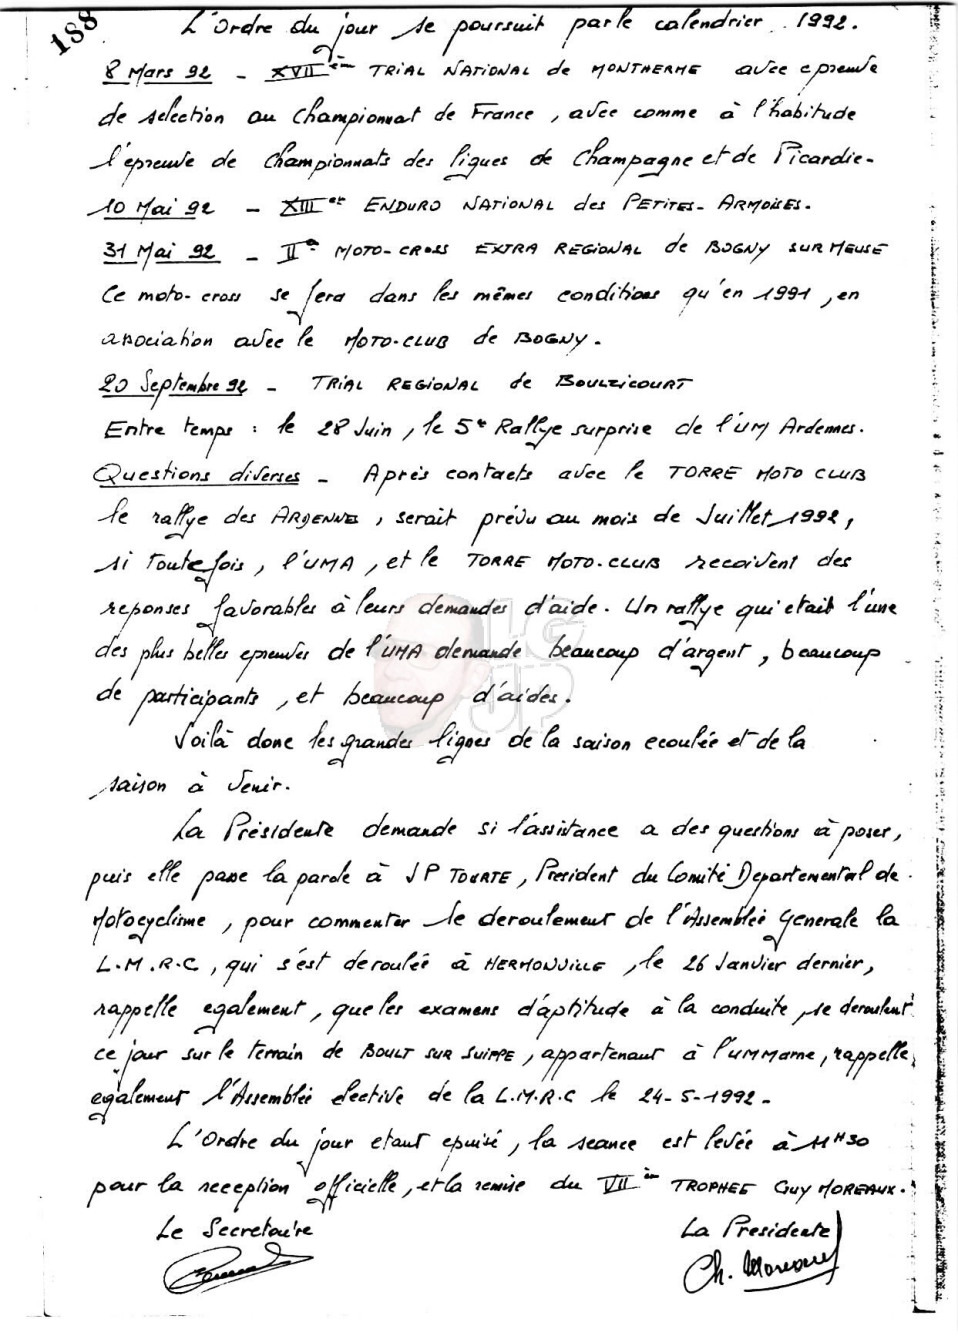 188
L'Ordre du jour se poursuit par le calendrier 1992.
8 Mars 92 - XVIIèm TRIAL NATIONAL de MONTHERME avec epreuve
de selection au Championnat de France, avec comme à l'habitude
l'epreuve de Championnats des ligues de Champagne et de Picardie-
10 Mai 92 - XIIIe ENDURO NATIONAL des PETITES-ARMOISES.
31 Mai 92 - IIe MOTO-CROSS EXTRA REGIONAL de BOGNY SUR MEUSE
Ce moto-cross se fera dans les mêmes conditions qu'en 1991, en
association avec le MOTO-CLUB de BOGNY.
20 Septembre 92 - TRIAL REGIONAL de BOULZICOURT
Entre temps : le 28 Juin, le 5e Rallye surprise de l'UM Ardennes.
Questions diverses - Après contacts avec le TORRE MOTO CLUB
le rallye des ARDENNES, serait prévu au mois de Juillet 1992,
si toutefois, l'UMA, et le TORRE MOTO-CLUB recoivent des
reponses favorables à leurs demandes d'aide. Un rallye qui etait l'une
des plus belles epreuves de l'UMA demande beaucoup d'argent, beaucoup
de participants, et beaucoup d'aides.
LG
JP
Voilà donc les grandes lignes de la saison ecoulée et de la
saison à venir.
La Présidente demande si l'assistance a des questions à poser,
puis elle passe la parole à JP TOURTE, President du Comité Departemental de
Motocyclisme, pour commenter le deroulement de l'Assemblée Generale la
L.M.R.C, qui s'est deroulée à HERMONVILLE, le 26 Janvier dernier,
rappelle egalement, que les examens d'aptitude à la conduite, se deroulent
ce jour sur le terrain de BOULT SUR SUIPPE, appartenant à l'UMMarne, rappelle
egalement l'Assemblée elective de la L.M.R.C le 24-5-1992-
L'Ordre du jour etant epuisé, la seance est levée à 11H30
pour la reception officielle, et la remise du VIIèm TROPHEE GUY MOREAUX.
Le Secretaire
La Presidente
Ch. Moreaux